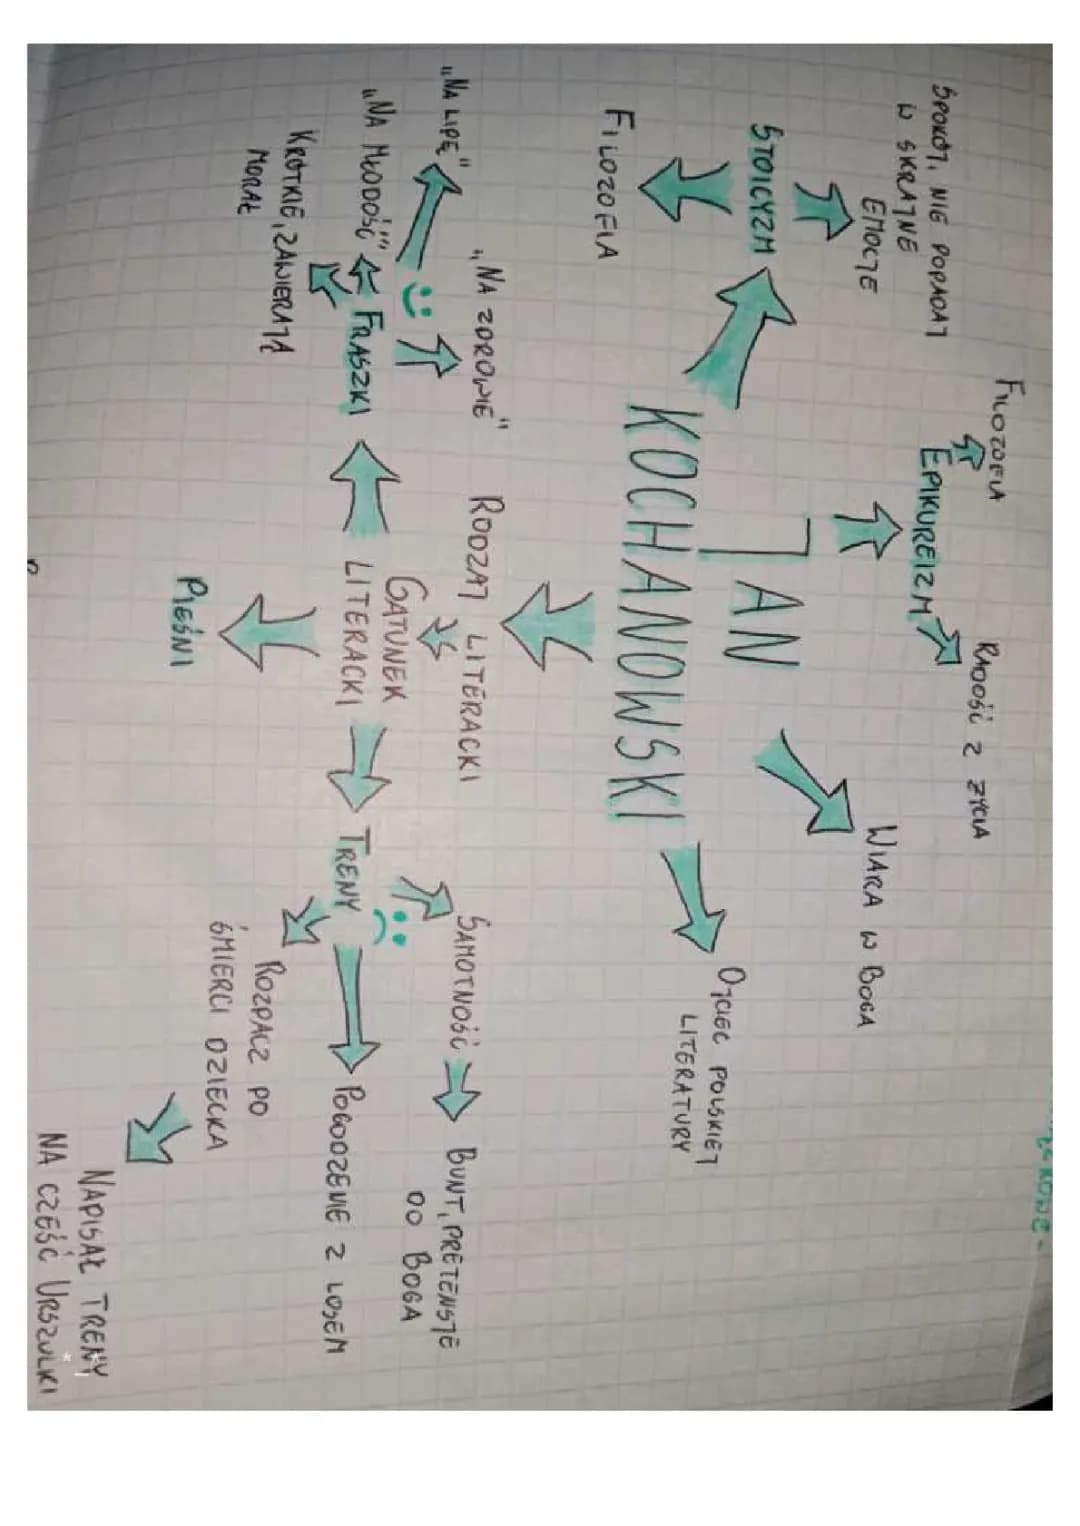 FILOZOFIA
EPIKUREIZM
RADOŚĆ Z ŻYCIA
SPOKÓJ, NIE POPADAJ
W SKRAJNE
EMOCJE
STOICYZM
FILOZOFIA
WIARA W BOGA
JAN
KOCHANOWSKI
OJCIEC POLSKIEJ
LITERATURY
RODZAJ LITERACKI
GATUNEK
LITERACKI
„NA ZDROWIE"
„NA LIPĘ"
„NA MŁODOŚĆ"
FRASZKI
KRÓTKIE, ZAWIERAJĄ
MORAŁ
PIEŚNI
TRENY
SAMOTNOŚĆ
BUNT, PRETENSJE
DO BOGA
POGODZENIE Z LOSEM
ROZPACZ PO
ŚMIERCI DZIECKA
NAPISAŁ TRENY
NA CZEŚĆ URSZULKI